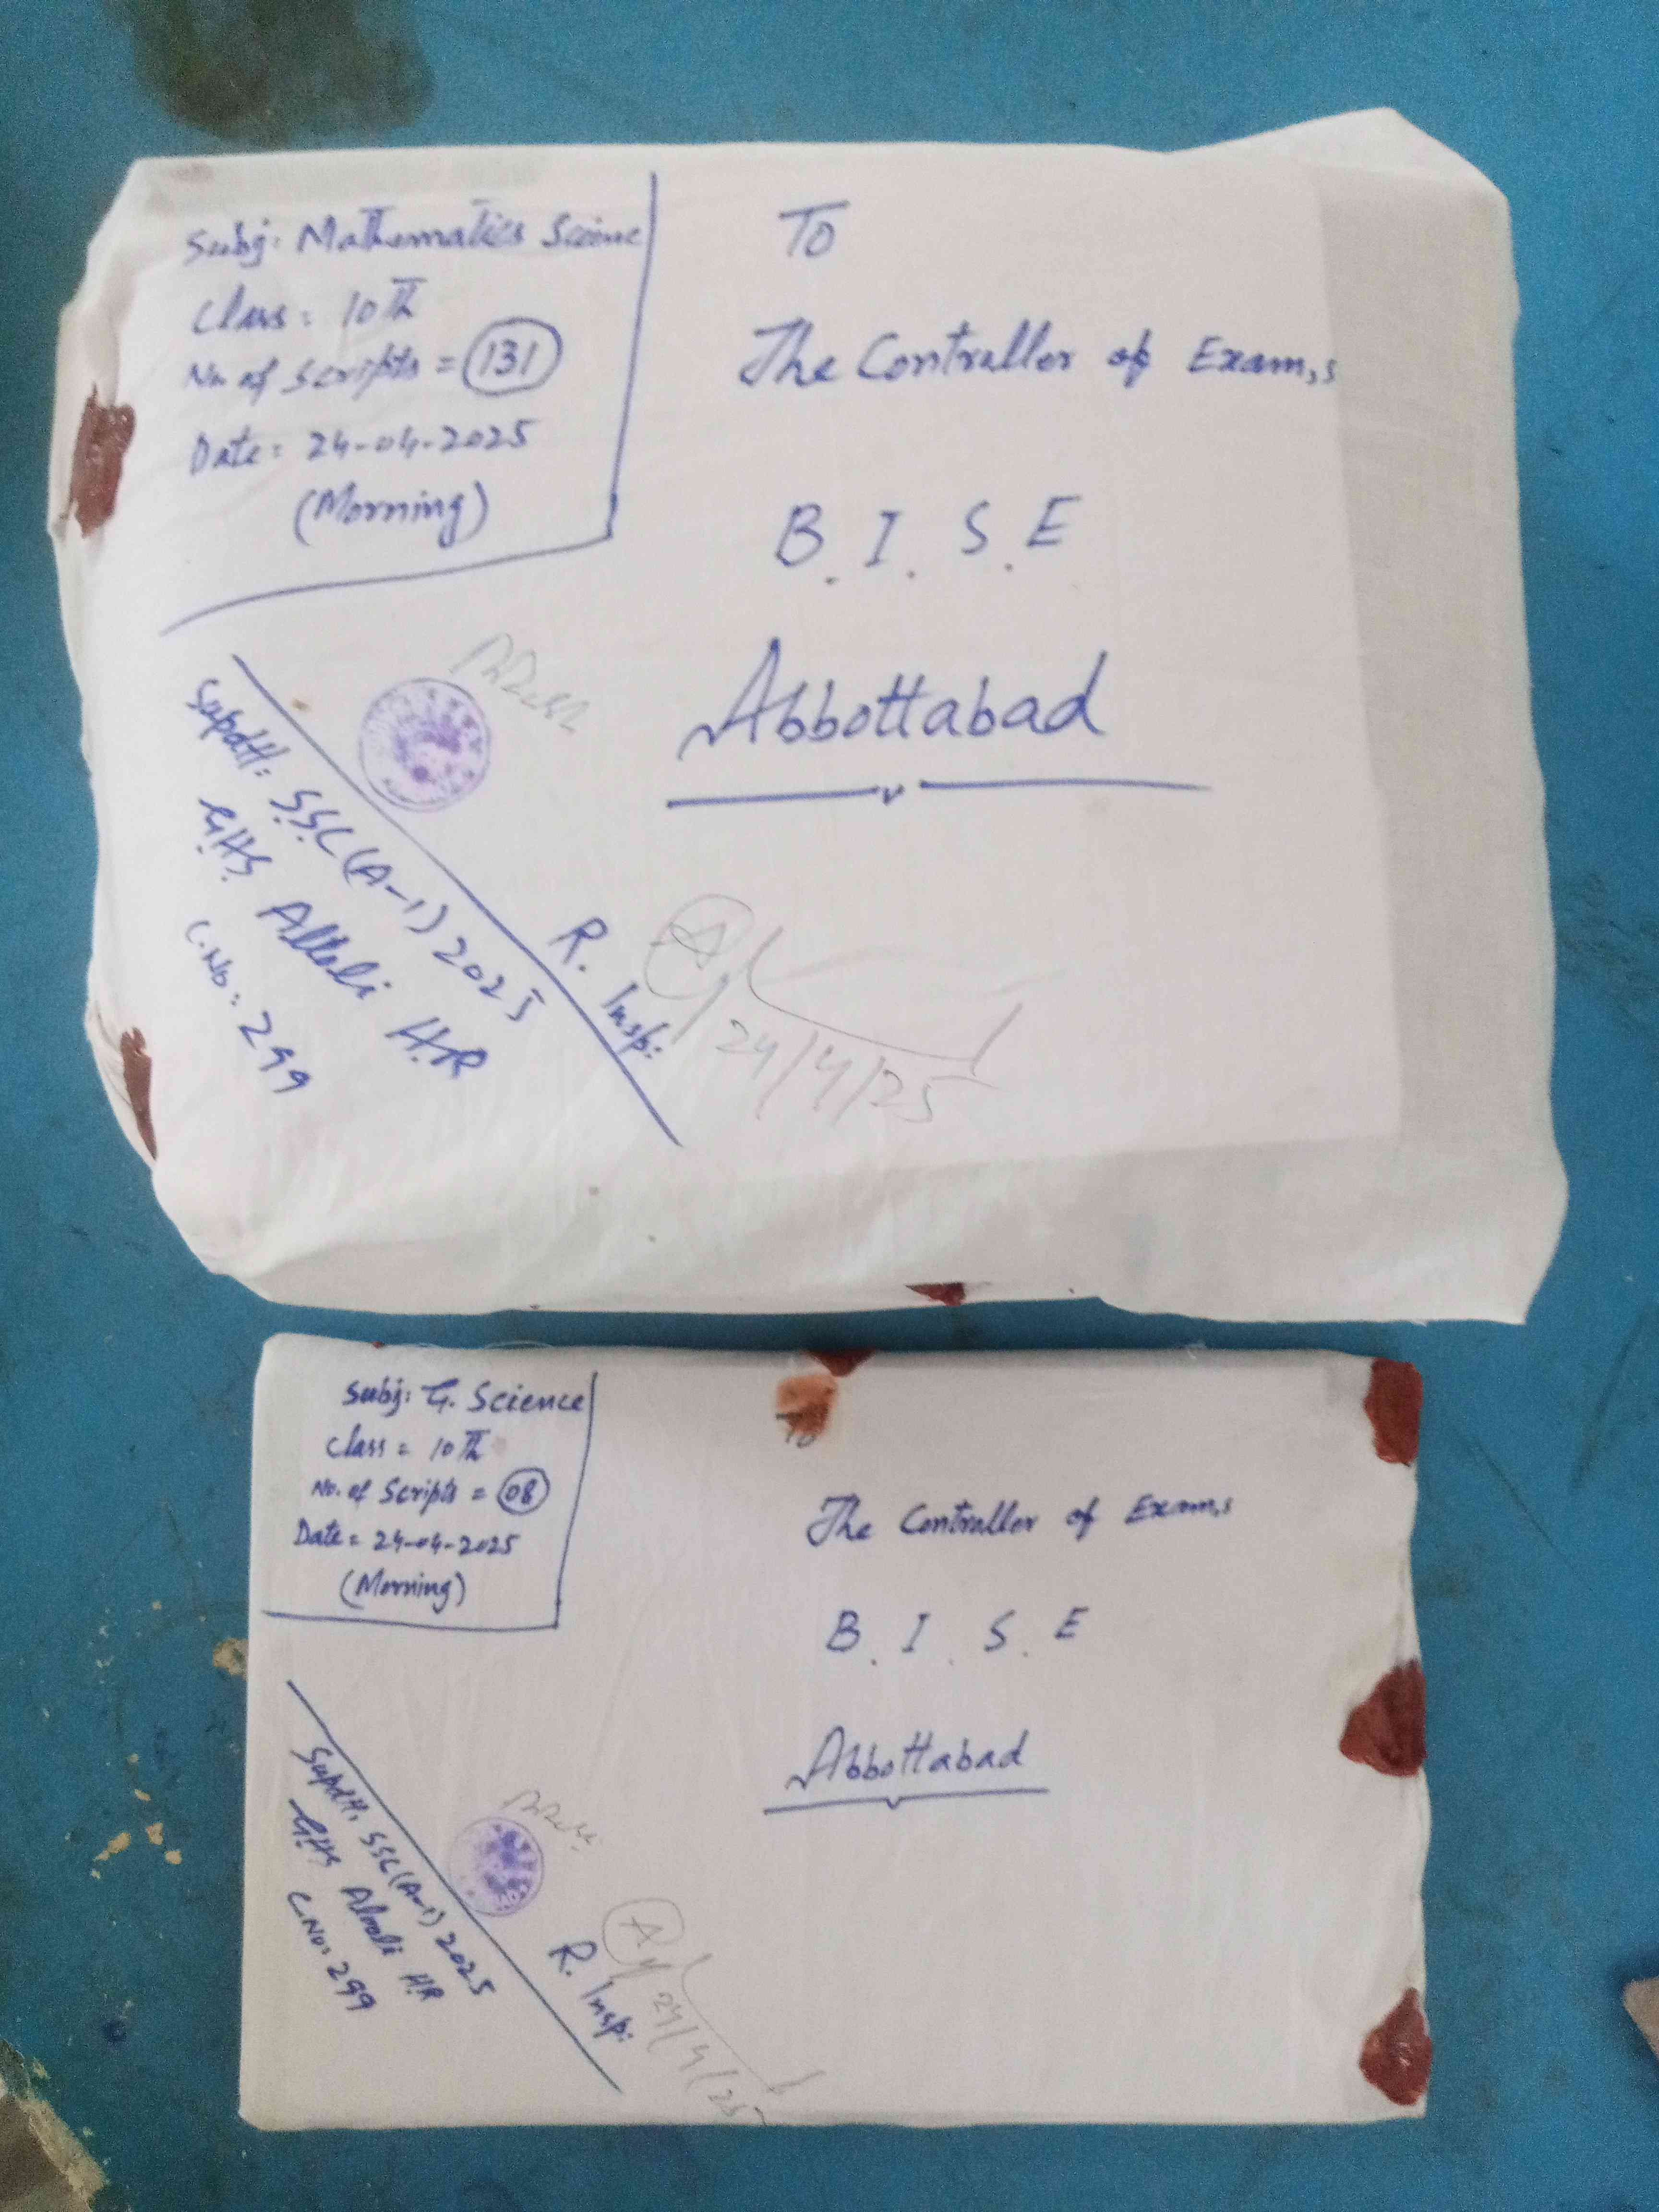 Subj: Mathematics Science
Class = 10th
No. of Scripts = 131
Date = 24-04-2025
(Morning)
To
The Controller of Exam,s
B. I. S. E
Abbottabad
Supdtt: SSC (A-1) 2025
GHS HR
C.No: 299
R. Insp:
24/4/25
Subj: G. Science
Class = 10th
No. of Scripts = 08
Date = 24-04-2025
(Morning)
To
The Controller of Exam,s
B. I. S. E
Abbottabad
Supdtt, SSC (A-1) 2025
GHS HR
C.No: 299
R. Insp:
24/4/25